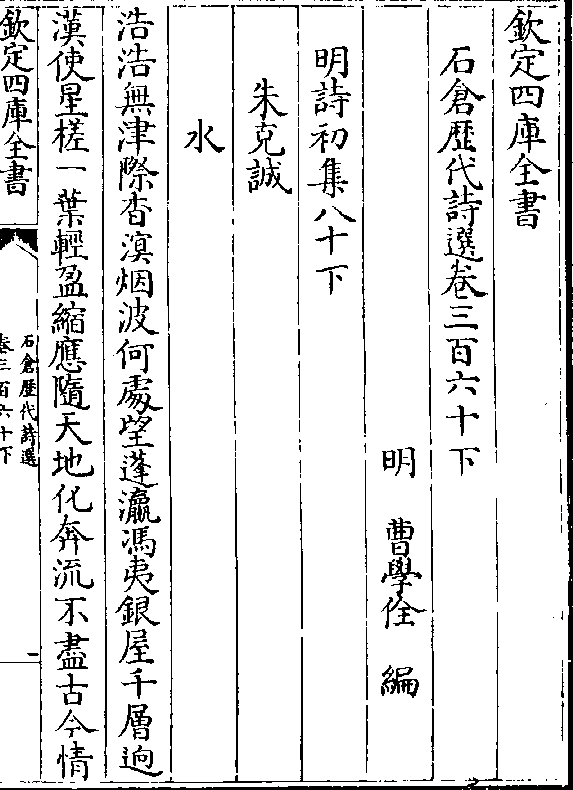 欽定四庫全書
石倉歴代詩選卷三百六十下
明　曹學佺　編
明詩初集八十下
朱克誠
水
浩浩無津際杳溟烟波何處望蓬瀛馮夷銀屋千層逈
漢使星槎一葉輕盈縮應隨天地化奔流不盡古今情
欽定四庫全書
石倉歴代詩選
卷三百六十下
一